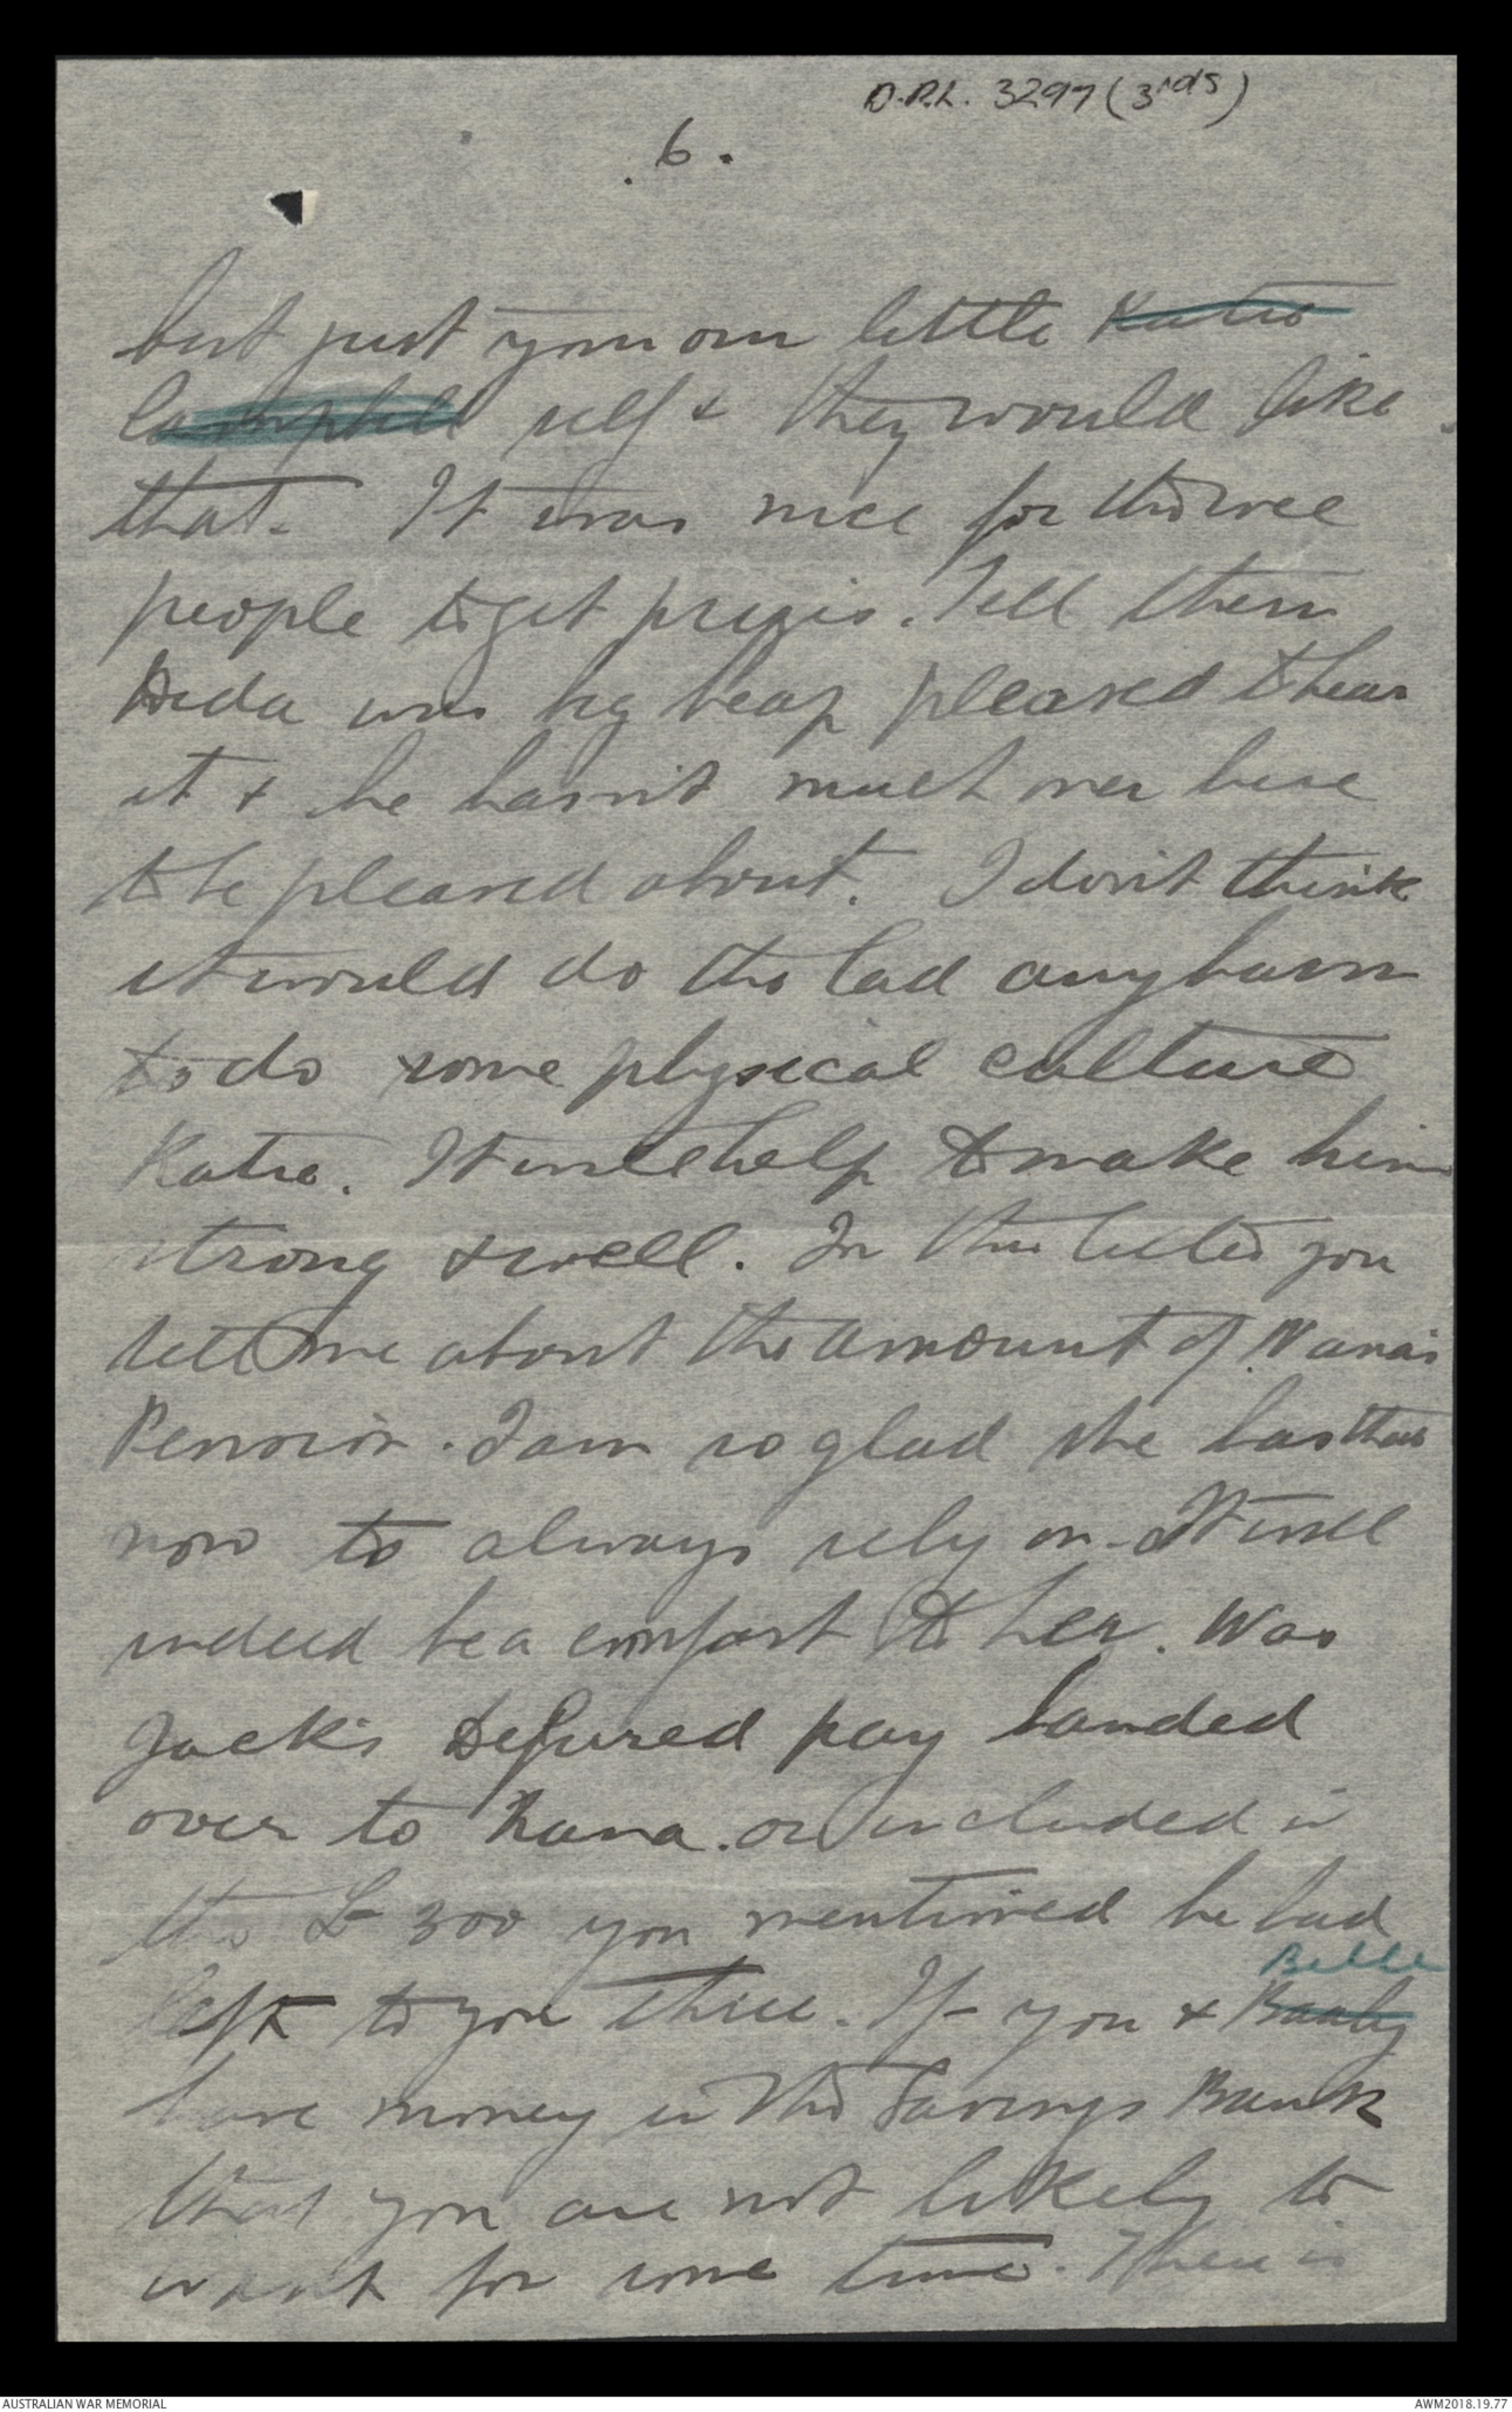 D.R.L. 3297 (3rds)
. 6 .
but just your own little Katie
Campbell self & they would like
that. It was nice for the wee
people to get prizes. Tell them
Dida was big heap pleased to hear
it & he hasn't much over here
to be pleased about. I don't think
it would do the lad any harm
to do some physical culture
Katie. It will help to make him
strong & well. In this letter you
tell me about the amount of Nana's
Pension. I am so glad she has that
now to always rely on. It will
indeed be a comfort to her. Was
Jack's Defured pay handed
over to Nana. or included in
the £300 you mentioned he had
Belle
left to you three. If you &
have money in the Savings Bank
that you are not likely to
want for some time. There is
AUSTRALIAN WAR MEMORIAL
AWM2018.19.77